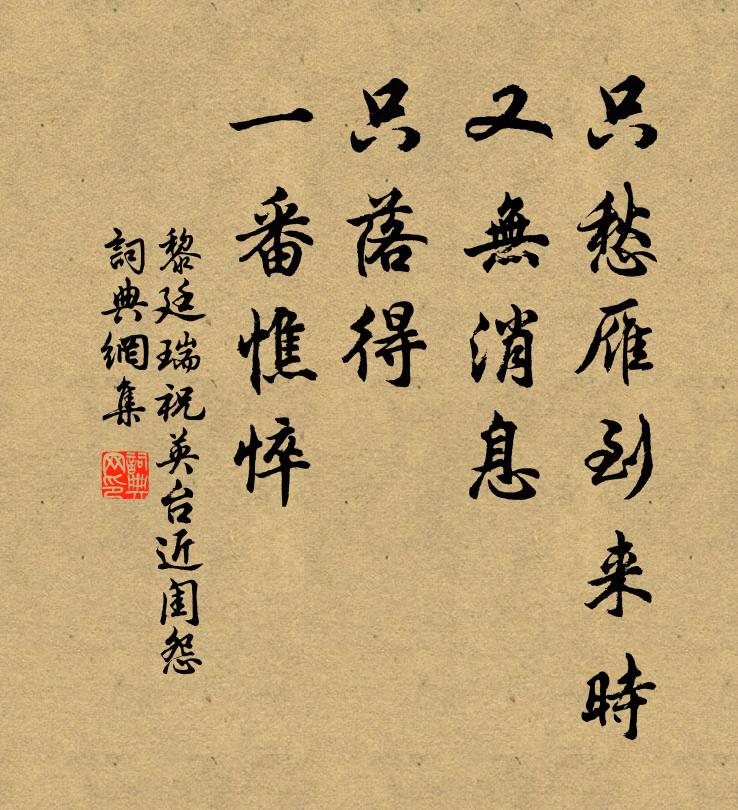 只愁雁到来時
又無消息
只落得
一番憔悴
黎廷瑞祝英台近閨怨
詞典網集
詞典网印